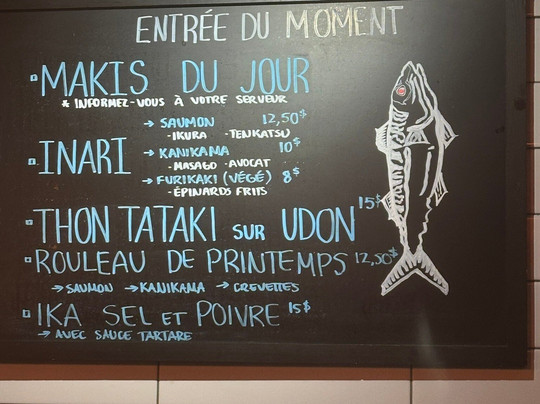 ENTRÉE DU MOMENT
MAKIS DU JOUR
* INFORMEZ-VOUS À VOTRE SERVEUR
INARI
→ SAUMON 12,50$
-IKURA -TENKATSU
→ KANIKAMA 10$
-MASAGO -AVOCAT
→ FURIKAKI (VÉGÉ) 8$
-ÉPINARDS FRITS
THON TATAKI SUR UDON 15$
ROULEAU DE PRINTEMPS 12,50$
→ SAUMON → KANIKAMA → CREVETTES
IKA SEL ET POIVRE 15$
→ AVEC SAUCE TARTARE